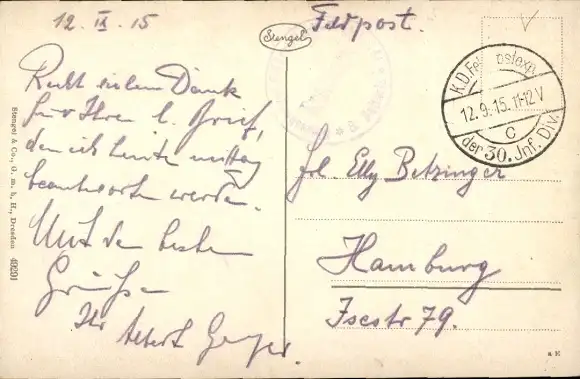 12. IX. 15
Feldpost.
Stengel
Recht vielen Dank
für Ihren l. Brief,
den ich heute mittag
beantworten werde.
Mit den besten
Grüßen
Ihr Albert Geyer.
K.D. Feldpostexp.
12.9.15. 11-12 V
c
der 30. Inf. Div.
Frl. Elly Betzinger
Hamburg
Isestr 79.
Stengel & Co., G. m. b. H., Dresden 49201